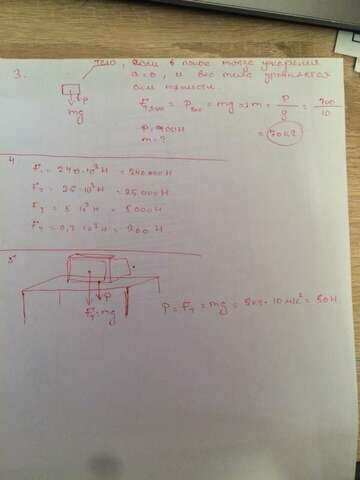 3.
тело, если в покое тогда ускорение
a=0, и вес тела уравняется
сил тяжести.
P
mg
= mg => m = P/g = 700/10
P = 700Н
m = ?
= 70кг
4
F₁ = 240·10³Н = 240000Н
F₂ = 25·10³Н = 25000Н
F₃ = 5·10³Н = 5000Н
F₄ = 0,2·10³Н = 200Н
5
P
Fт=mg
P = Fт = mg = 5кг·10м/с² = 50Н.